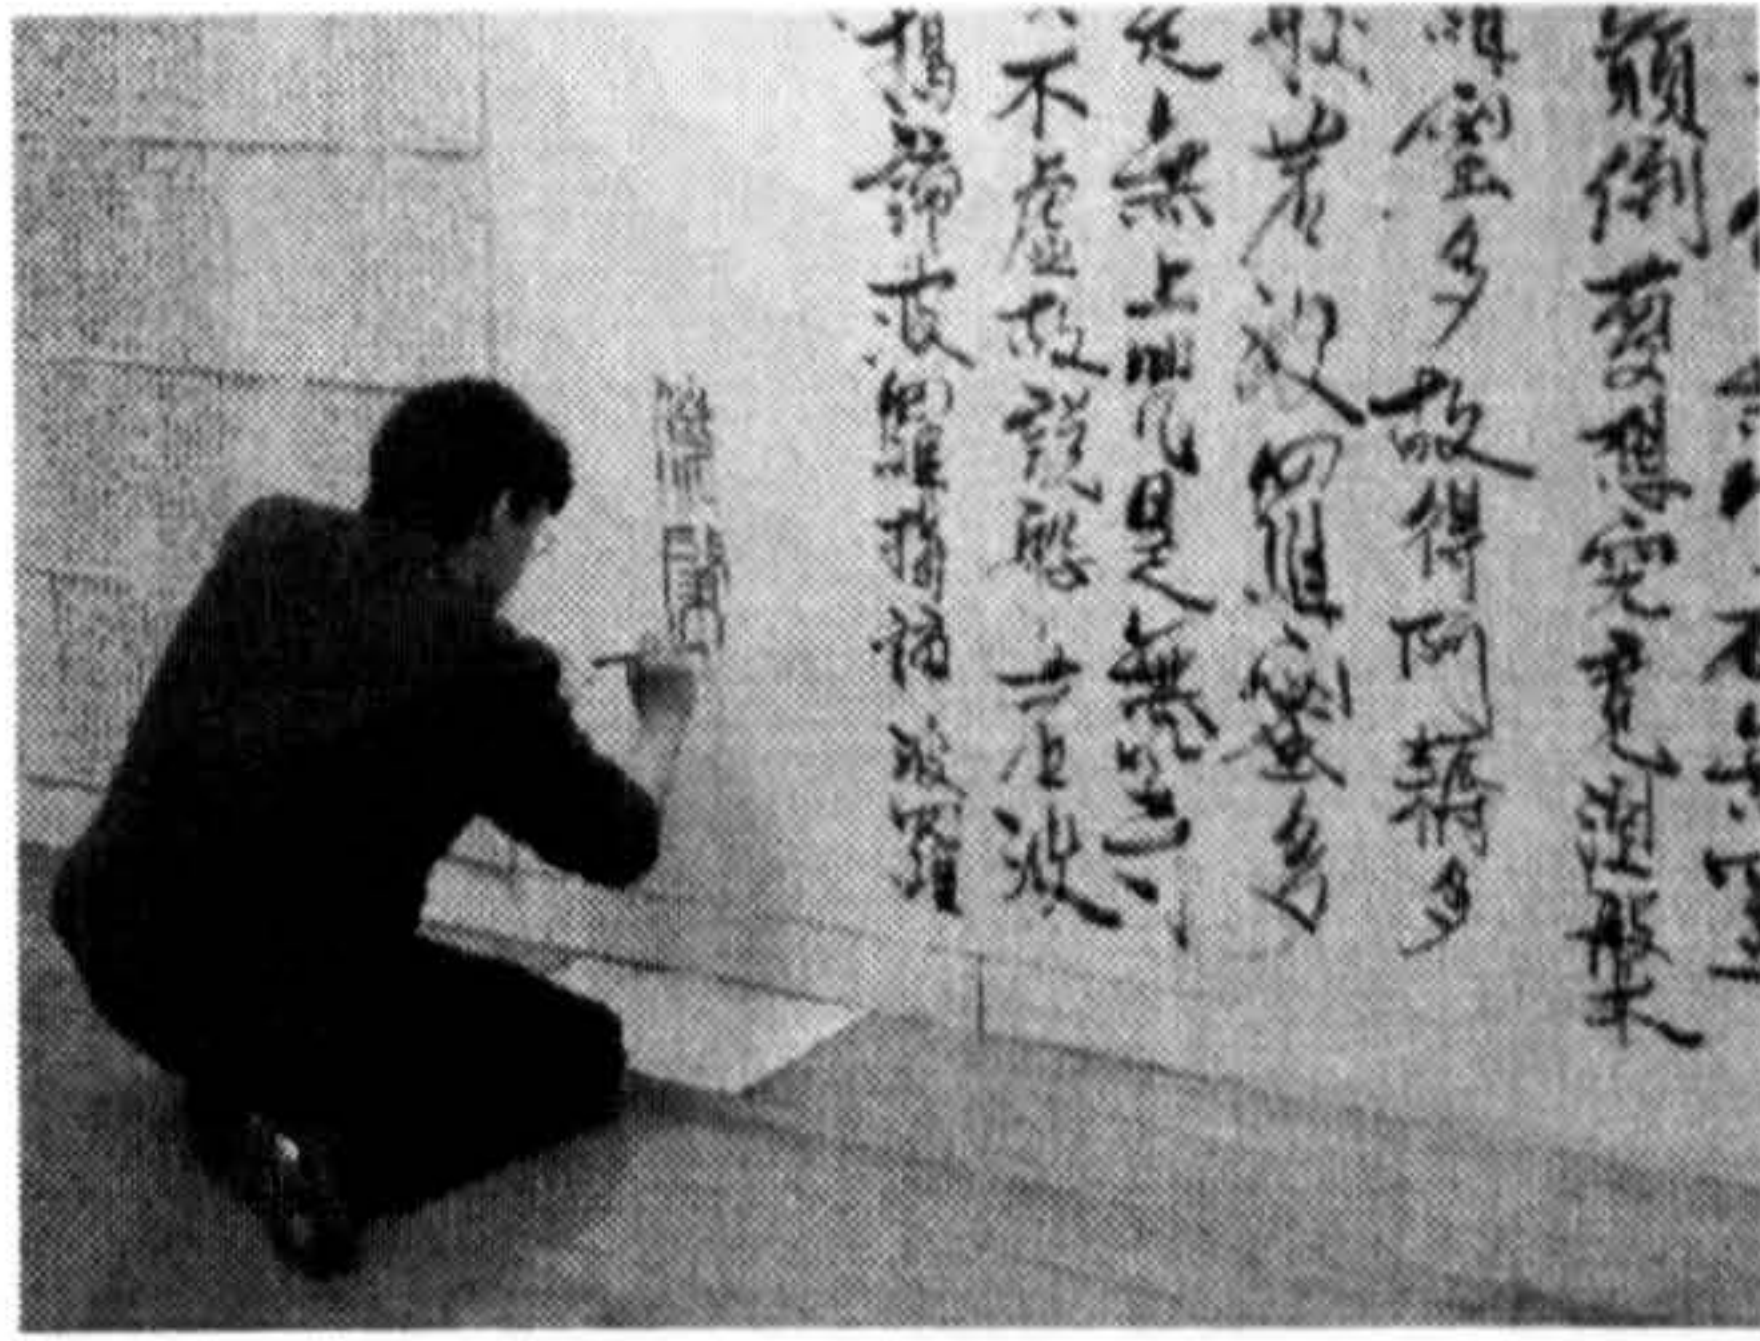 顛倒夢想究竟涅槃
蜜多故得阿耨多
般若波羅蜜多
是無上咒是無等等
不虛故說般若波
揭諦波羅揭諦波羅